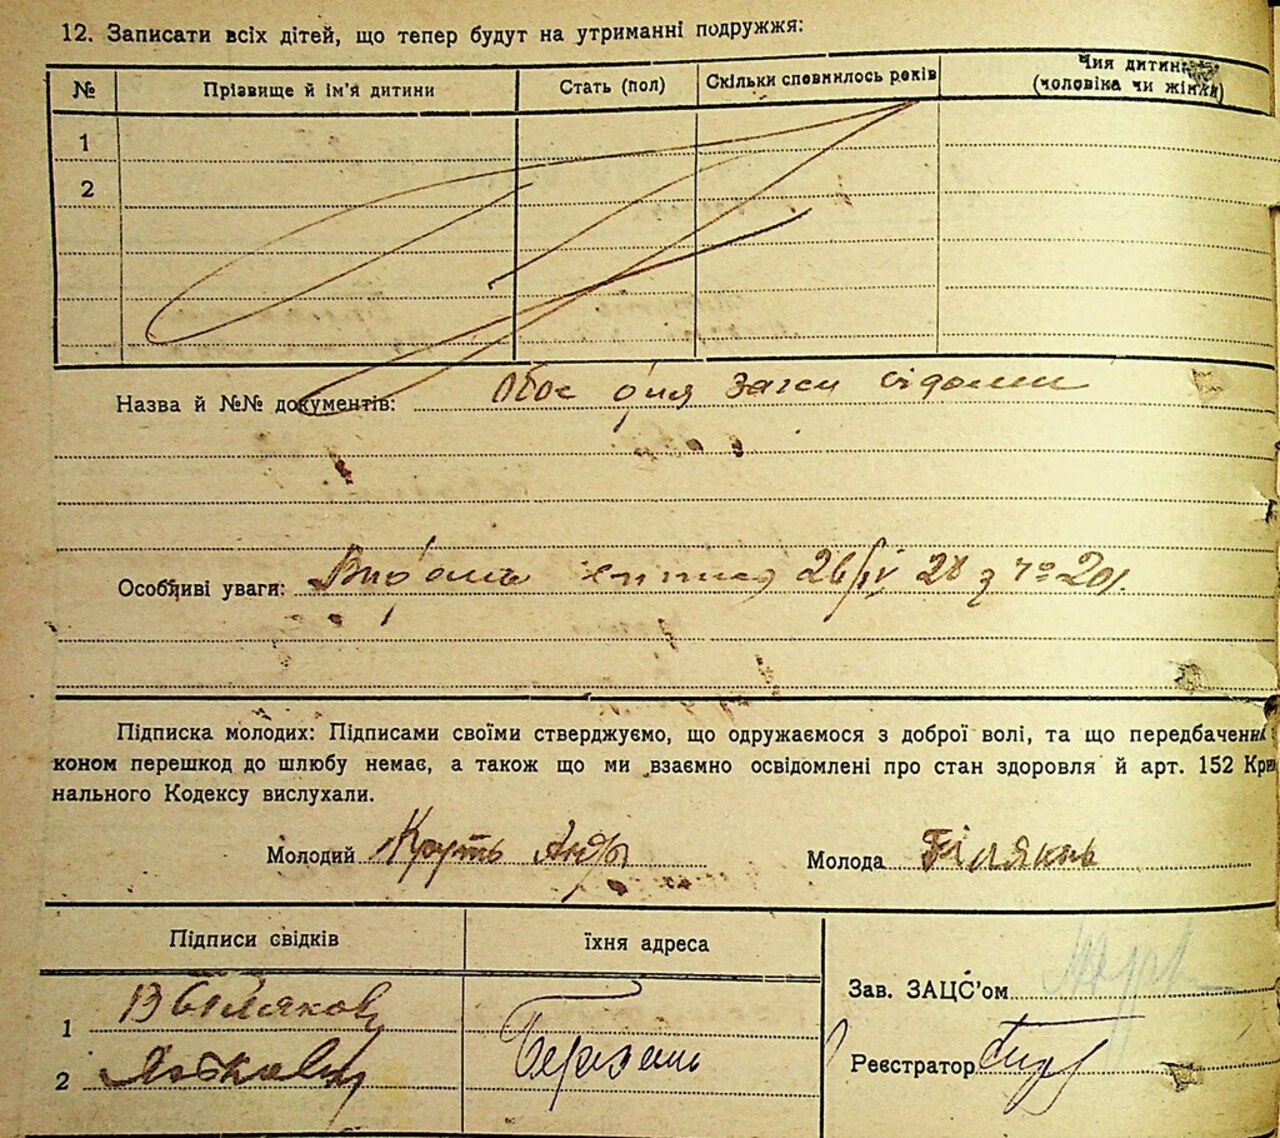 12. Записати всіх дітей, що тепер будут на утриманні подружжя:
№ Прізвище й ім'я дитини Стать (пол) Скільки сповнилось років Чия дитина (чоловіка чи жінки)
1
2
Назва й №№ документів: Обоє для Загсу відомі
Особливі уваги: 26/IV 28 з
Підписка молодих: Підписами своїми стверджуємо, що одружаємося з доброї волі, та що передбачених
коном перешкод до шлюбу немає, а також що ми взаємно освідомлені про стан здоровля й арт. 152 Кри
нального Кодексу вислухали.
Молодий Круть Андр Молода
Підписи свідків їхня адреса
Зав. ЗАЦС'ом
1
Реєстратор
2